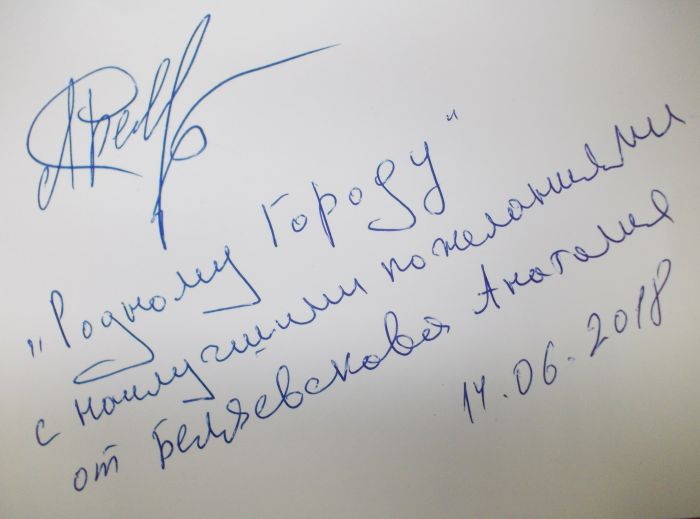 "Родному Городу"
с наилучшими пожеланиями
от Беляевскова Анатолия
14.06.2018